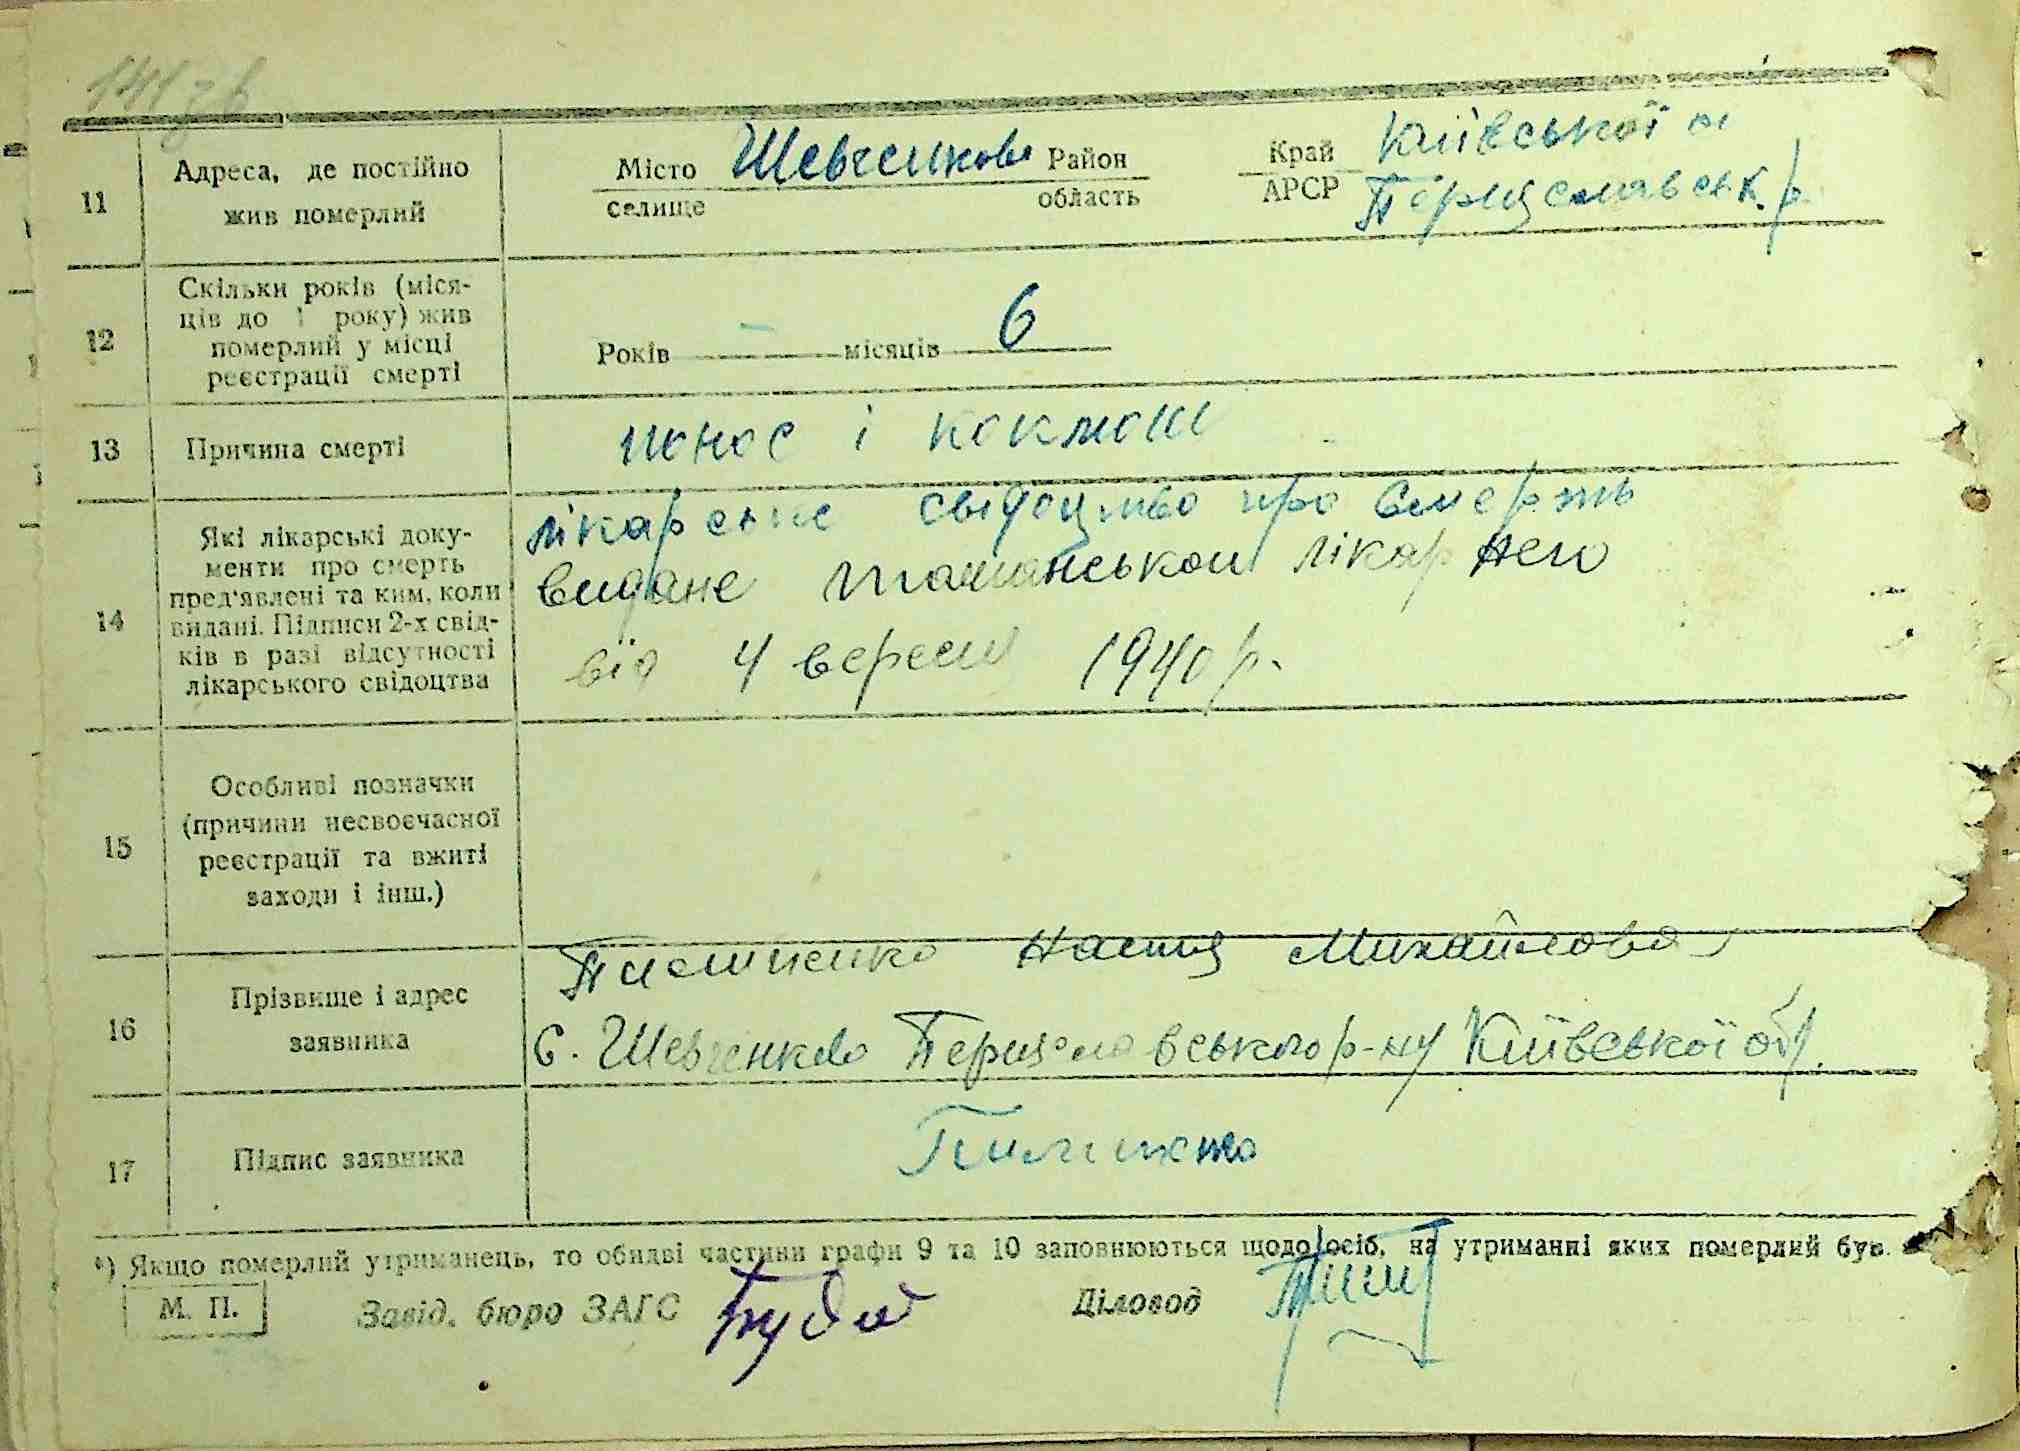 141 зв
11
Адреса, де постійно
жив померлий
Місто Шевченково Район
селище область
Край Київської
АРСР Переяславськ. р.
12
Скільки років (міся-
ців до 1 року) жив
померлий у місці
реєстрації смерті
Років — місяців 6
13
Причина смерті
понос і коклюш
14
Які лікарські доку-
менти про смерть
пред'явлені та ким, коли
видані. Підписи 2-х свід-
ків в разі відсутності
лікарського свідоцтва
лікарське свідоцтво про смерть
видане ташанською лікарнею
від 4 вересня 1940 р.
15
Особливі позначки
(причини несвоєчасної
реєстрації та вжиті
заходи і інш.)
16
Прізвище і адрес
заявника
Настя Михайлова
с. Шевченково Переяславського р-ну Київської обл.
17
Підпис заявника
*) Якщо померлий утриманець, то обидві частини графи 9 та 10 заповнюються щодо осіб, на утриманні яких померлий був.
М. П.
Завід. бюро ЗАГС
Діловод